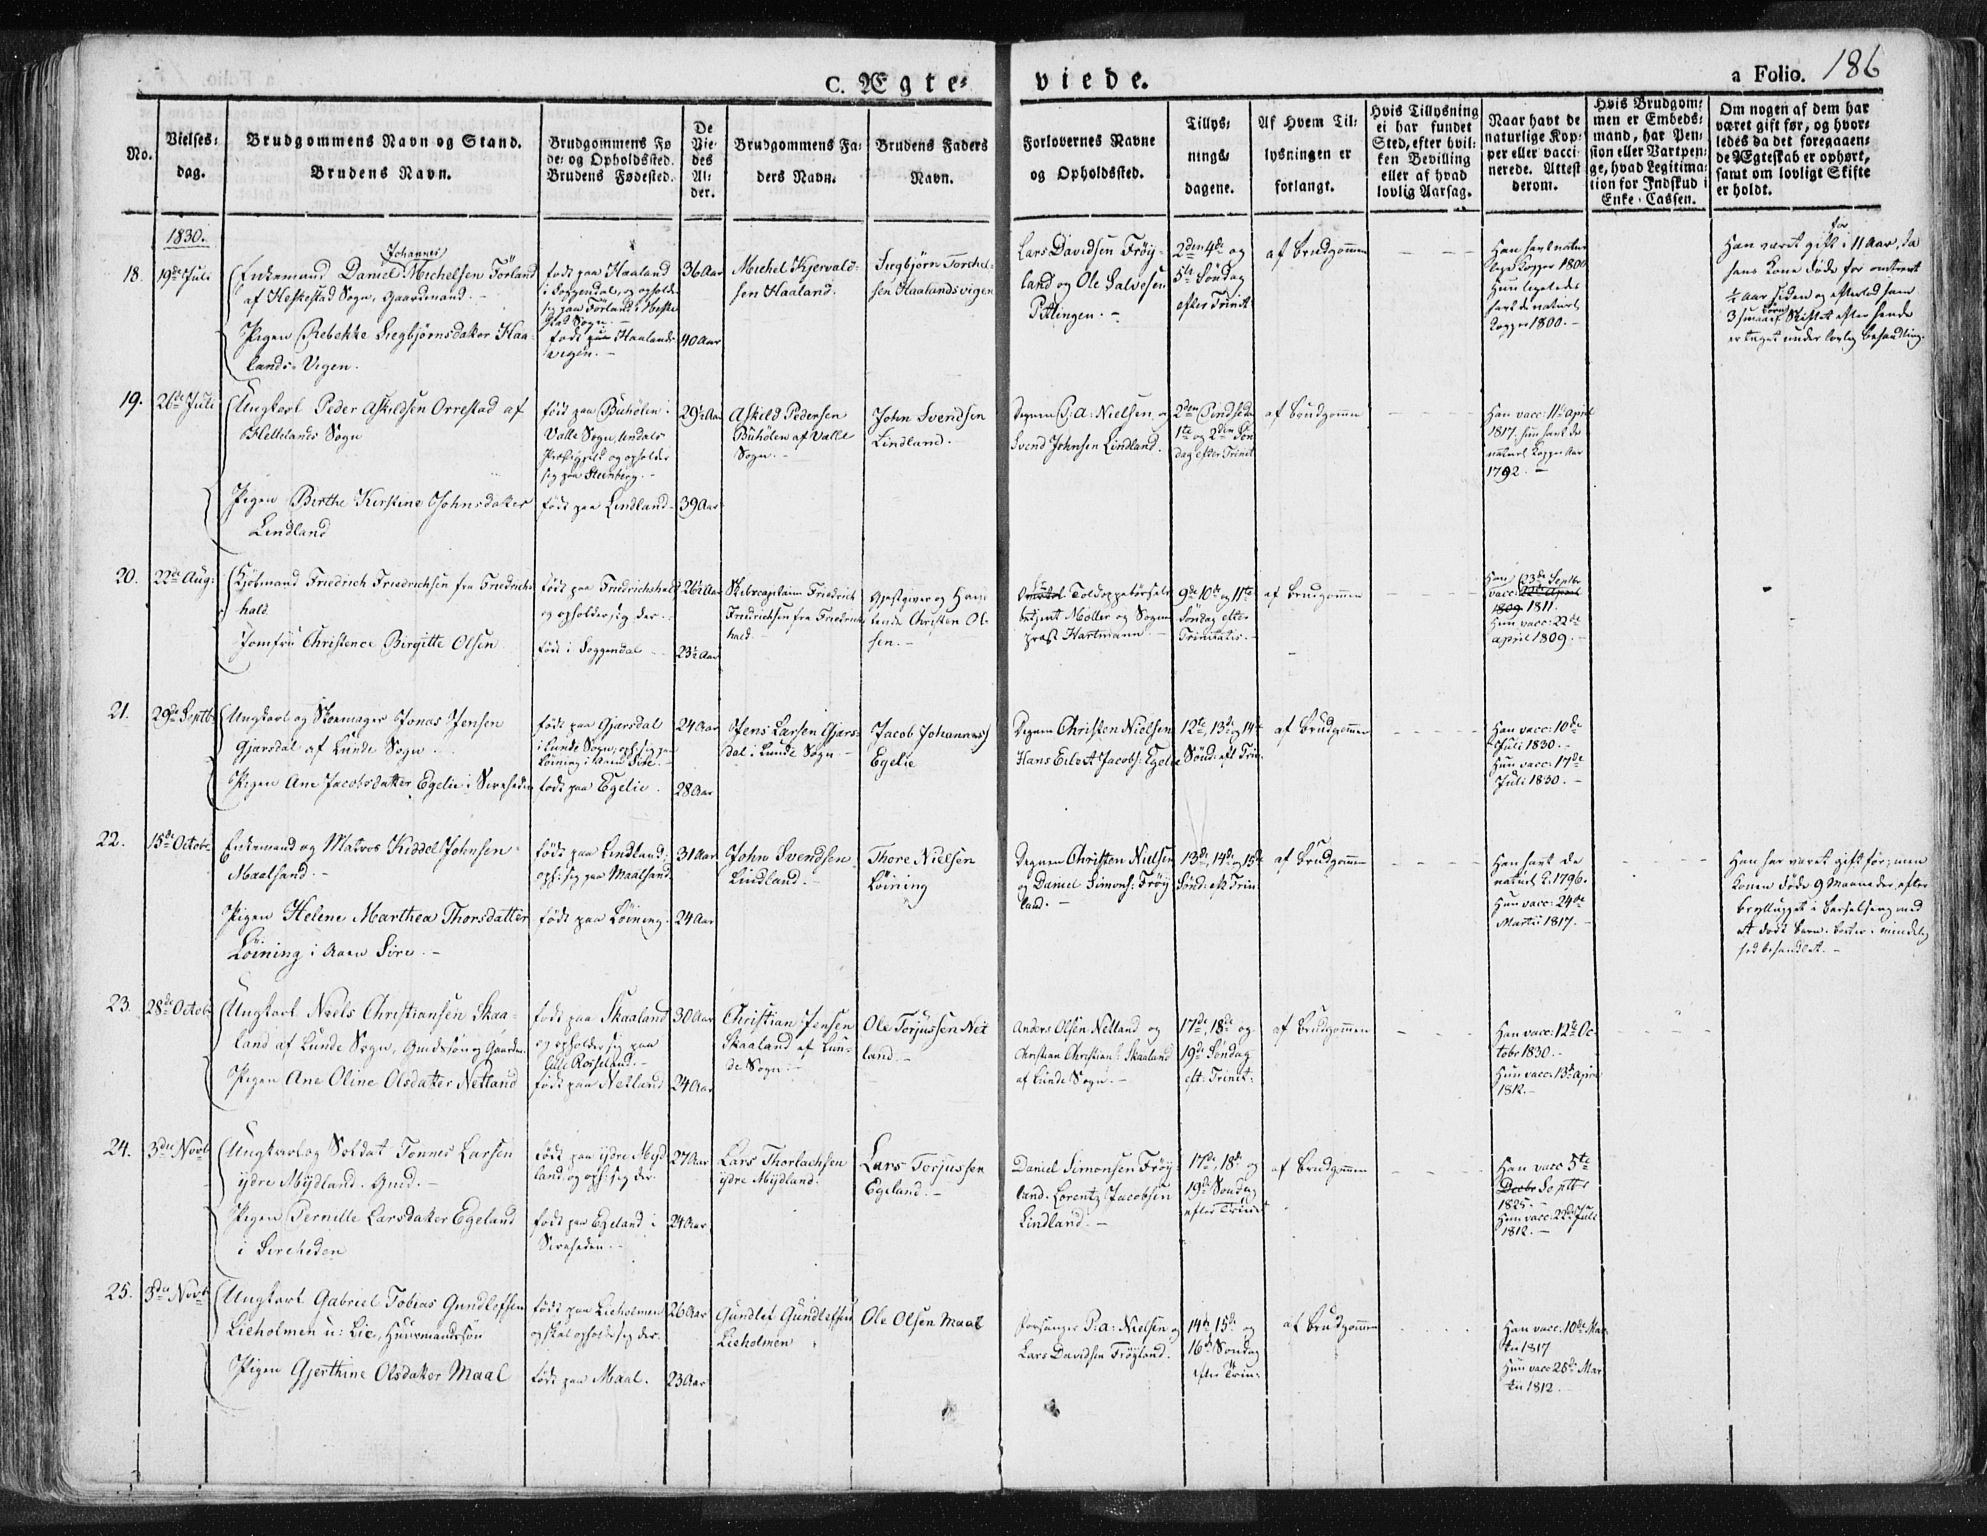 C. Ægte-
viede.
a Folio. 186
No.
Vielses-
dag.
Brudgommens Navn og Stand.
Brudens Navn.
Brudgommens Fø
de- og Opholdssted.
Brudens Fødested.
De
Vie-
des
Al-
der.
Brudgommens Fa-
ders Navn.
Brudens Faders
Navn.
Forlovernes Navne
og Opholdssted.
Tillys-
nings-
dagene.
Af Hvem Til-
lysningen er
forlangt.
Hvis Tillysning
ei har fundet
Sted, efter hvil-
ken Bevilling
eller af hvad
lovlig Aarsag.
Naar havt de
naturlige Kop-
per eller vacci-
nerede. Attest
derom.
Hvis Brudgom-
men er Embeds-
mand, har Pen-
sion eller Vartpen-
ge, hvad Legitima-
tion for Indskud i
Enke-Cassen.
Om nogen af dem har
været gift før, og hvor-
ledes da det foregaaen-
de Ægteskab er ophørt,
samt om lovligt Skifte
er holdt.
1830.
18.
19de Juli
Johannes
Enkemand Daniel Michelsen Förland
af Heskestad Sogn, Gaardmand.
Pigen Rebekke Siegbjörnsdatter Haa-
lands-Vigen.
født paa Haaland
i Soggendal, og opholder
sig paa Förland i Heske
stad Sogn.
født paa Haalands
vigen.
36 Aar
40 Aar
Michel Kjervald-
sen Haaland.
Siegbjörn Torchel-
sen Haalandsvigen
Lars Davidsen Fröy-
land og Ole Salvesen
Pittingen.
2den 4de og
5te Søndag
efter Trinit
af Brudgommen
Han havt natur
lige Kopper 1800
Hun ligeledes
havt de naturl.
Kopper 1800.
for
Han været gift i 11 Aar, da
hans Kone døde for omtrent
½ Aar siden og efterlod ham
3 smaae Børn Skiftet efter hende
er taget under lovlig behandling.
19.
26de Juli
Ungkarl Peder Askildsen Orrestad af
Hellelands Sogn
Pigen Birthe Kirstine Johnsdatter
Lindland
født paa Buhölen i
Valle Sogn, Undals
Præstegield og opholder
sig paa Steenberg.
født paa Lindland
29½ Aar
39 Aar
Askild Pedersen
Buhölen af Valle
Sogn.
John Svendsen
Lindland.
Degnen P: A: Nielsen og
Svend Johnsen Lindland.
2den Pindsedag
1te og 2den Søn
dag efter Trinit
af Brudgommen
Han vacc: 11te April
1817. hun havt de
naturl Kopper Aar
1792.
20.
22de Aug:
Kjöbmand Friedrich Friedrichsen fra Friedrichs
hald
Jomfru Christence Birgitte Olsen
født paa Friedrichshald
og opholder sig der
født i Soggendal
26½ Aar
23½ Aar
Skibscapitain Friedrich
Friedrichsen fra Friedrichs
hald
Gjestgiver og Han-
lende Christen Ol-
sen.
Toldoppebørsels
betjent Möller og Sogne
præst Hartmann
9de 10de og 11te
Søndag efter
Trinitatis.
af Brudgommen
Han 23de Septbr
vacc: 22de April
1809 1811.
Hun vacc: 22de
april 1809.
21.
29de Septb
Ungkarl og Skoemager Jonas Jensen
Gjarsdal af Lunde Sogn
Pigen Ane Jacobsdatter Egelie i Sireheden
født paa Gjarsdal
i Lunde Sogn, oph: sig paa
Löining i Aaen Sire.
født paa Egelie.
24 Aar
28 Aar
Jens Larsen Gjars-
dal i Lunde Sogn
Jacob Johannes)
Egelie
Degnen Christen Nielsen
Hans Eilert Jacobs: Egelie
12te, 13de og 14de
Sönd: eft Trin:
af Brudgommen
Han vacc: 10de
Juli 1830.
Hun vacc: 17de
Juli 1830.
22.
15de Octobr
Enkemand og Matros Kiddel Johnsen
Maalsand.
Pigen Helene Marthea Thorsdatter
Löining i Aaen Sire.
født paa Lindland,
oph: sig paa Maalsand
født paa Löining.
31 Aar
24 Aar
John Svendsen
Lindland.
Thore Nielsen
Löining
Degnen Christen Nielsen
og Daniel Simons: Fröy
land.
13de, 14de og 15de
Sönd: eft Trin:
af Brudgommen
Han havt de
naturl K: 1796.
Hun vacc: 24de
Martii 1817.
Han har været gift før; men
Konen døde 9 Maaneder efter
Brylluppet i Barselseng med
et dødt Barn. Boet er i Mindelig
hed behandlet.
23.
28de Octob
Ungkarl Niels Christiansen Skaa-
land af Lunde Sogn, Gmdssön og Gaardm.
Pigen Ane Oline Olsdatter Netland
født paa Skaaland
og opholder sig paa
Lille Rosseland.
født paa Netland
30 Aar
24 Aar
Christian Jensen
Skaaland af Lun-
de Sogn.
Ole Torjussen Net
land.
Anders Olsen Netland og
Christian Christians: Skaaland
af Lunde Sogn.
17de, 18de og
19de Søndag
eft: Trinit:
af Brudgommen
Han vacc: 12te Oc-
tobr 1830.
Hun vacc: 13de April
1812.
24.
3die Novb
Ungkarl og Soldat Tönnes Larsen
ydre Mydland. Gmd.
Pigen Pernille Larsdatter Egeland
i Sireheden
født paa ydre Myd
land og oph: sig der.
født paa Egeland i
Sireheden.
27 Aar
24 Aar
Lars Thorlachsen
ydre Mydland.
Lars Torjussen
Egeland.
Daniel Simonsen Fröy-
land. Lorentz Jacobsen
Lindland.
17de, 18de og
19de Søndag
efter Trinit
af Brudgommen
Han vacc 5te
Decbr Septbr
1825.
Hun vacc: 22de Juli
1812.
25.
3die Novb
Ungkarl Gabriel Tobias Gundlefsen
Lieholmen u: Lie, Huusmandssön
Pigen Gjerthine Olsdatter Maal
født paa Lieholmen
og skal opholde sig der.
født paa Maal.
26 Aar
23 Aar
Gundlef Gundlefsen
Lieholmen
Ole Olsen Maal
Forsanger P: a: Nielsen og
Lars Davidsen Fröyland.
14de 15de og
16de Søndag
efter Trin:
af Brudgommen
Han vacc: 10de Mar
tii 1817
Hun vacc 25de Mar
tii 1812.